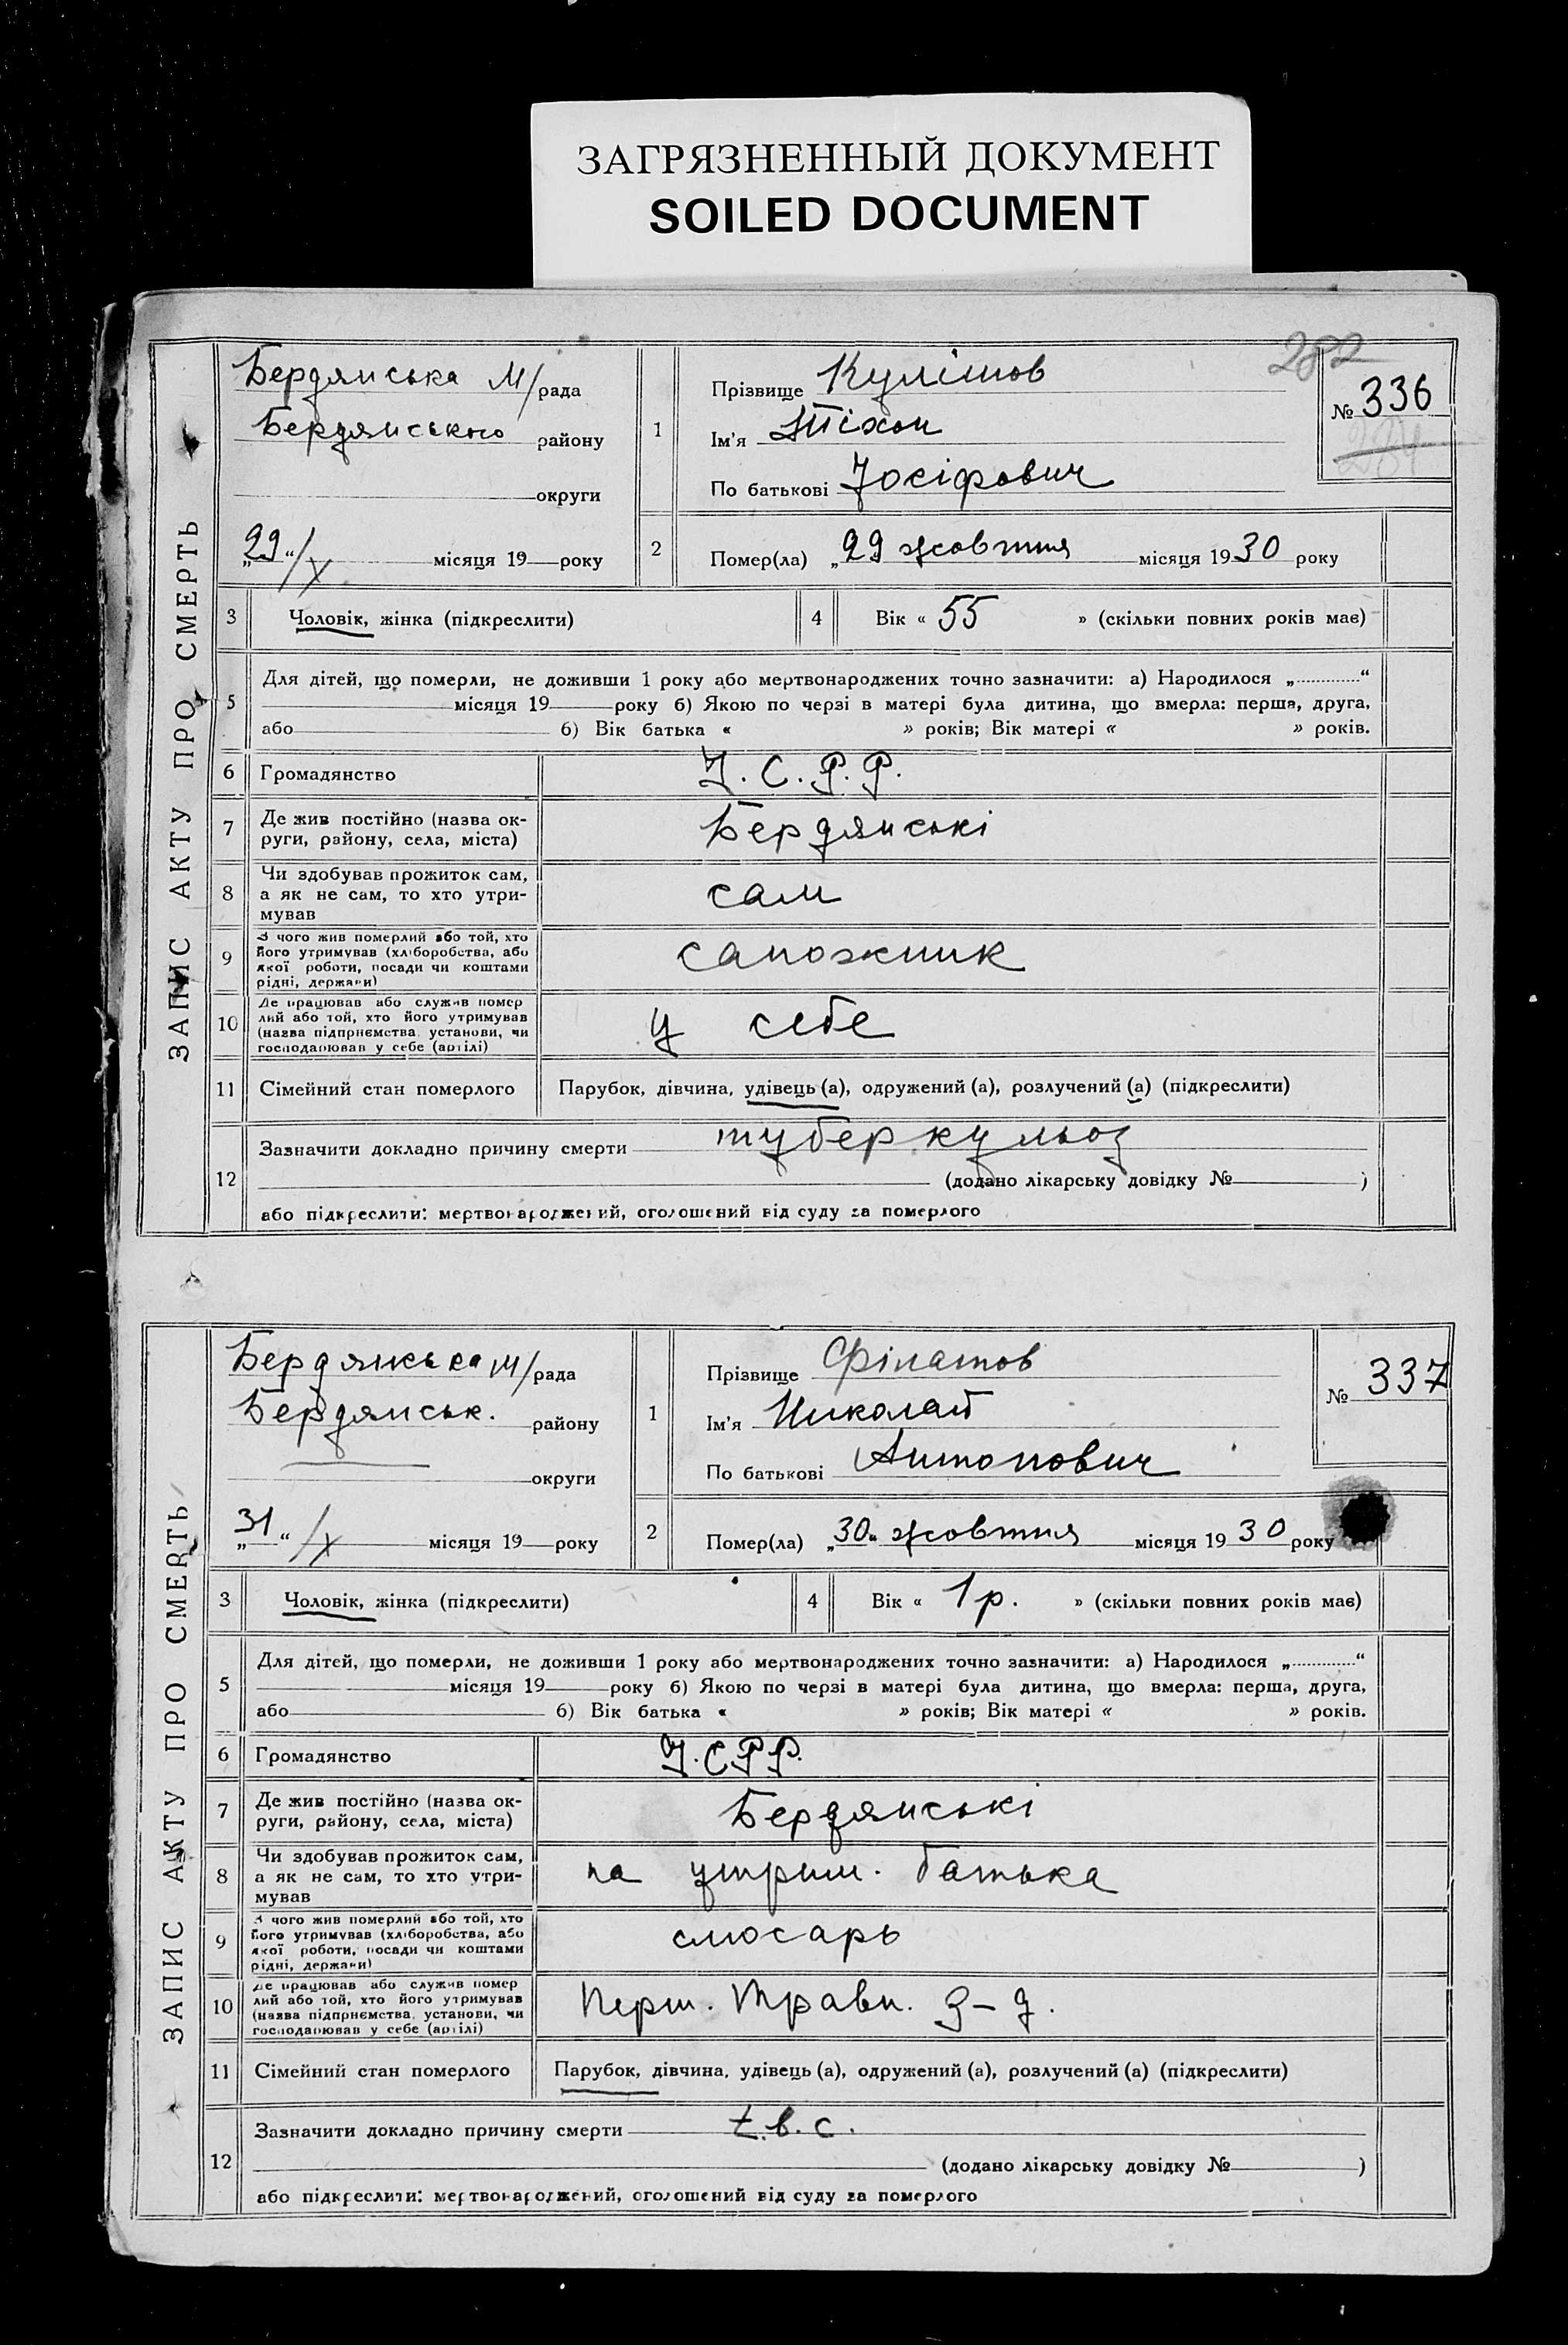 ЗАГРЯЗНЕННЫЙ ДОКУМЕНТ
SOILED DOCUMENT
ЗАПИС АКТУ ПРО СМЕРТЬ
282
Бердянська М/рада
Бердянського району
округи
„29“/X місяця 19 року
1
Прізвище Кулішов
Ім'я Тіхон
По батькові Йосіфович
№ 336
284
2
Помер(ла) „29 жовтня місяця 1930 року
3
Чоловік, жінка (підкреслити)
4
Вік « 55 » (скільки повних років має)
5
Для дітей, що померли, не доживши 1 року або мертвонароджених точно зазначити: а) Народилося „ “
місяця 19 року б) Якою по черзі в матері була дитина, що вмерла: перша, друга,
або б) Вік батька « » років; Вік матері « » років.
6
Громадянство
У. С. Р. Р.
7
Де жив постійно (назва ок-
руги, району, села, міста)
Бердянські
8
Чи здобував прожиток сам,
а як не сам, то хто утри-
мував
сам
9
З чого жив померлий або той, хто
його утримував (хліборобства, або
якої роботи, посади чи коштами
рідні, держави)
сапожник
10
Де працював або служив помер
лий або той, хто його утримував
(назва підприємства, установи, чи
господарював у себе (артілі)
у себе
11
Сімейний стан померлого
Парубок, дівчина, удівець (а), одружений (а), розлучений (а) (підкреслити)
12
Зазначити докладно причину смерти туберкульоз
(додано лікарську довідку № )
або підкреслити: мертвонароджений, оголошений від суду за померлого
ЗАПИС АКТУ ПРО СМЕРТЬ
Бердянська М/рада
Бердянськ. району
округи
„31“/X місяця 19 року
1
Прізвище Філатов
Ім'я Николай
По батькові Антонович
№ 337
2
Помер(ла) „30“ жовтня місяця 1930 року
3
Чоловік, жінка (підкреслити)
4
Вік « 1 р. » (скільки повних років має)
5
Для дітей, що померли, не доживши 1 року або мертвонароджених точно зазначити: а) Народилося „ “
місяця 19 року б) Якою по черзі в матері була дитина, що вмерла: перша, друга,
або б) Вік батька « » років; Вік матері « » років.
6
Громадянство
У. С Р Р.
7
Де жив постійно (назва ок-
руги, району, села, міста)
Бердянські
8
Чи здобував прожиток сам,
а як не сам, то хто утри-
мував
на утрим. батька
9
З чого жив померлий або той, хто
його утримував (хліборобства, або
якої роботи, посади чи коштами
рідні, держави)
слюсарь
10
Де працював або служив помер
лий або той, хто його утримував
(назва підприємства, установи, чи
господарював у себе (артілі)
Перш. Травн. з-д.
11
Сімейний стан померлого
Парубок, дівчина, удівець (а), одружений (а), розлучений (а) (підкреслити)
12
Зазначити докладно причину смерти t. b. c.
(додано лікарську довідку № )
або підкреслити: мертвонароджений, оголошений від суду за померлого